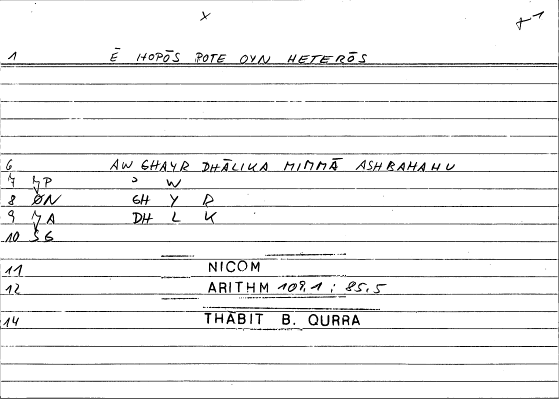 x
1 Ē HOPŌS POTE OYN HETERŌS
6 AW GHAYR DHĀLIKA MIMMĀ ASHBAHAHU
7 ɁP ɔ W
8 ØN GH Y R
9 ɁA DH L K
10 SG
11 NICOM
12 ARITHM 109,1 ; 85,5
14 THĀBIT B. QURRA